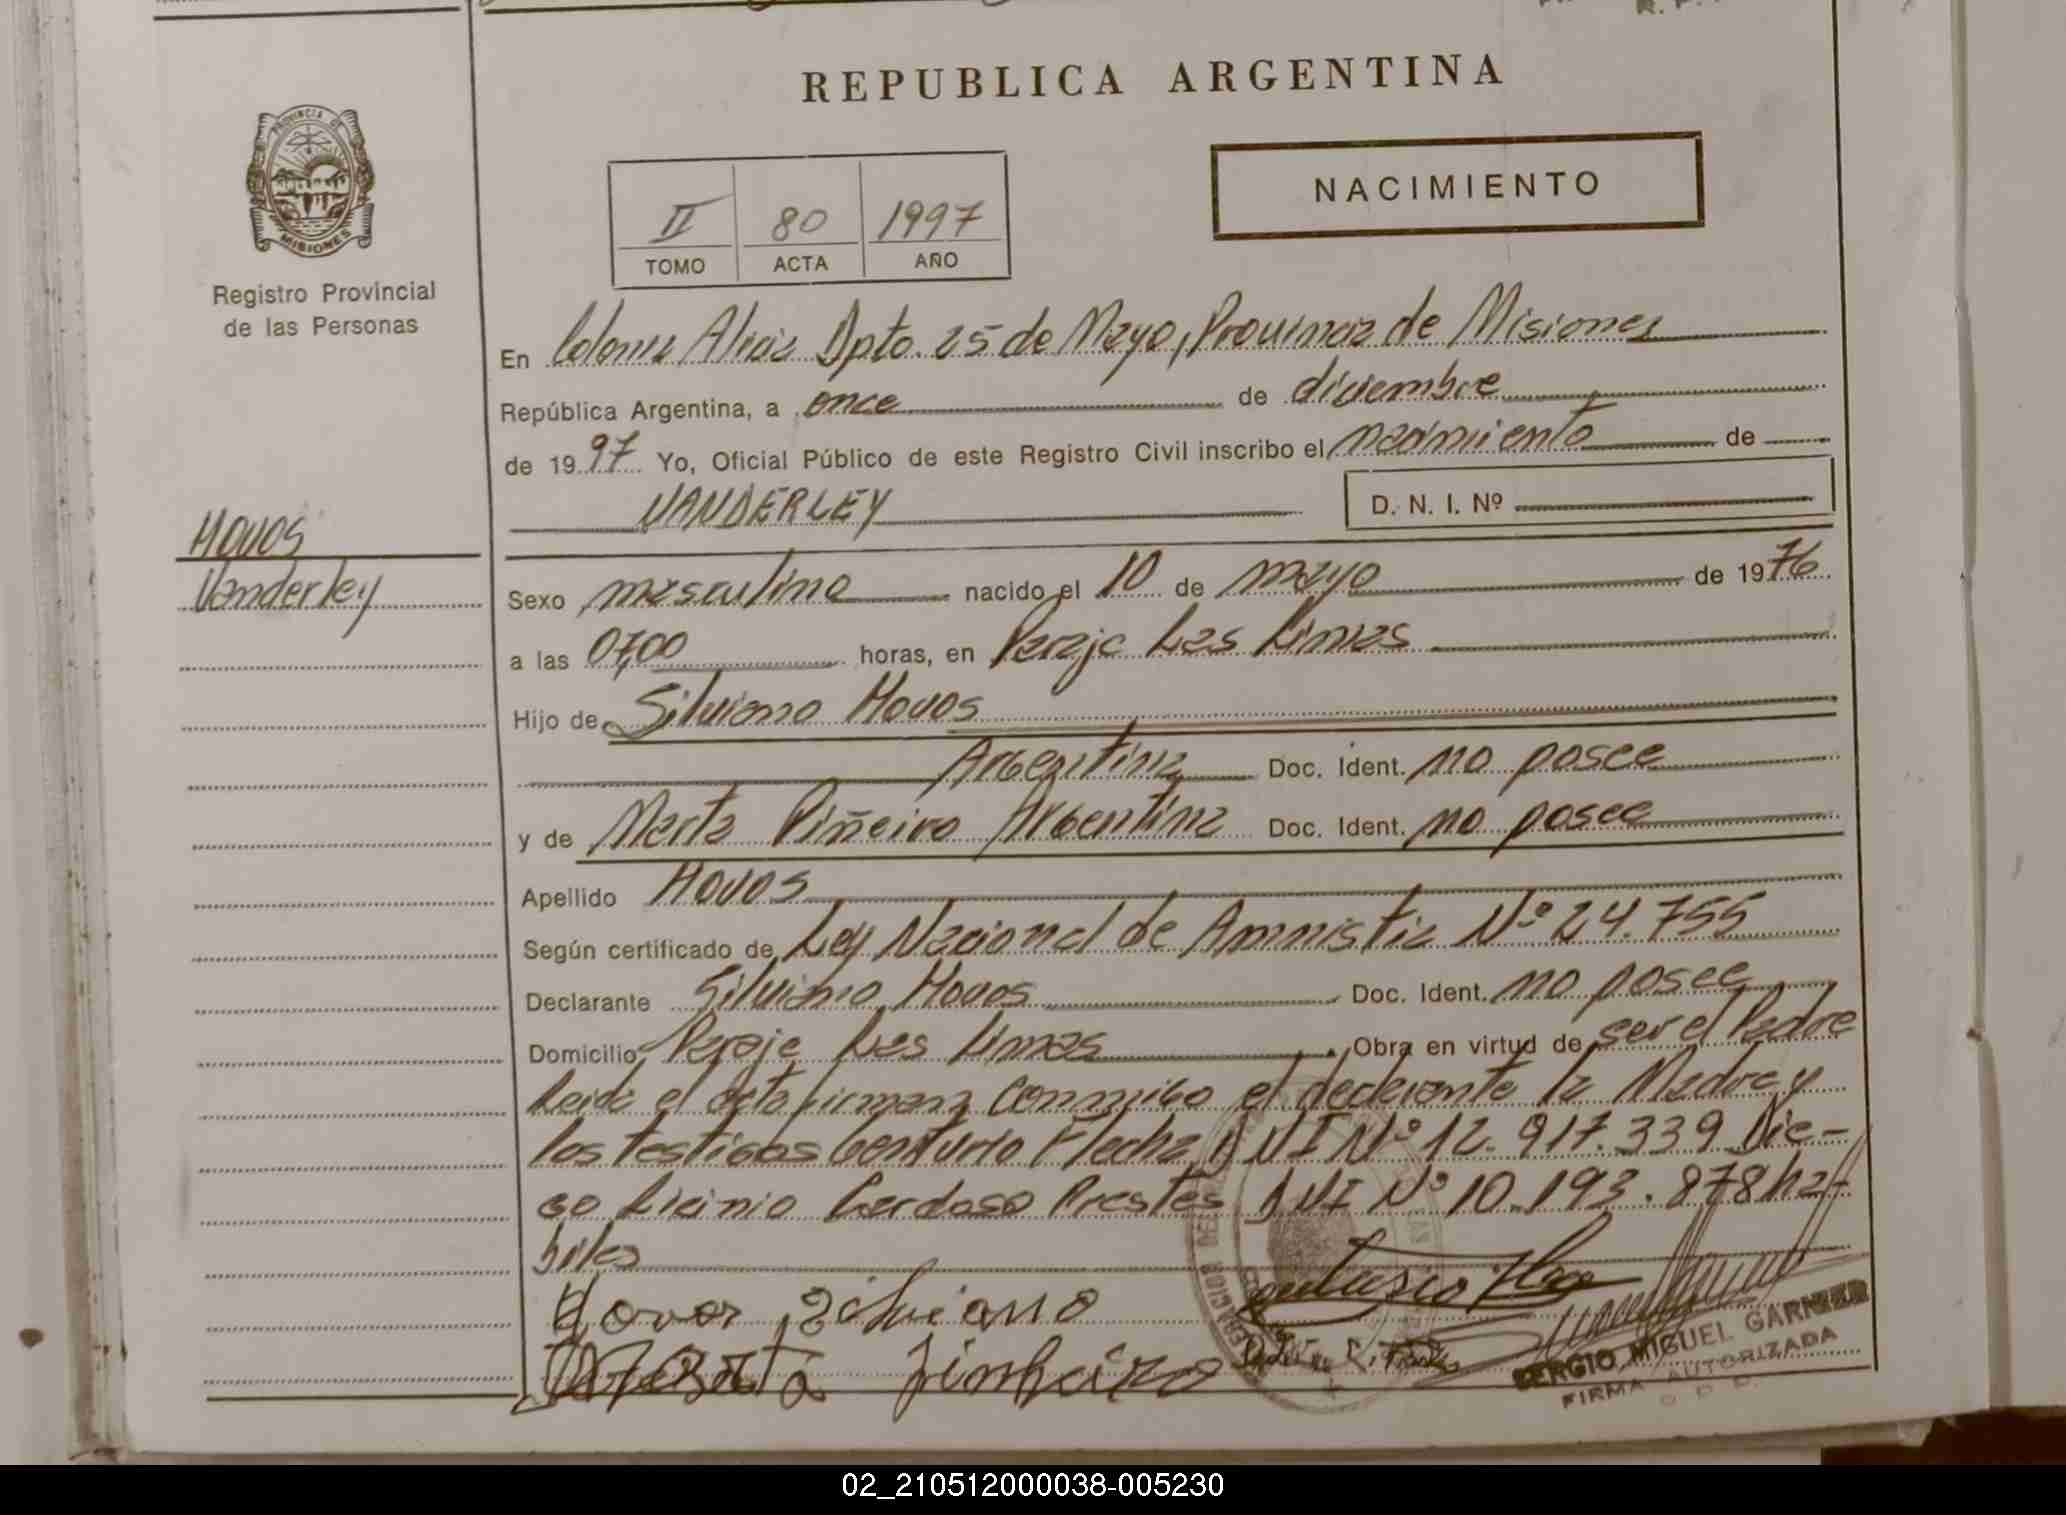 REPUBLICA ARGENTINA
PROVINCIA DE
MISIONES
Registro Provincial
de las Personas
NACIMIENTO
II 80 1997
TOMO ACTA AÑO
En Colonia Alicia Dpto. 25 de Mayo, Provincia de Misiones
República Argentina, a once de diciembre
de 1997 Yo, Oficial Público de este Registro Civil inscribo el nacimiento de
VANDERLEY D. N. I. Nº
Hovos
Vanderley
Sexo masculino nacido el 10 de mayo de 1976
a las 07,00 horas, en Paraje Las Limas
Hijo de Silviano Hovos
Argentina Doc. Ident. no posee
y de Marta Piñeiro Argentina Doc. Ident. no posee
Apellido Hovos
Según certificado de Ley Nacional de Amnistia Nº 24.755
Declarante Silviano Hovos Doc. Ident. no posee
Domicilio Paraje Las Limas Obra en virtud de ser el Padre
Leida el acta firman conmigo el declarante la Madre y
los testigos Centurio Flecha DNI Nº 12.917.339 Die-
go Licinio Cardoso Prestes DNI Nº 10.193.878 ha-
biles
Hovos Silviano
Marta Pinheiro
SERGIO MIGUEL GARNIER
FIRMA AUTORIZADA
02_210512000038-005230